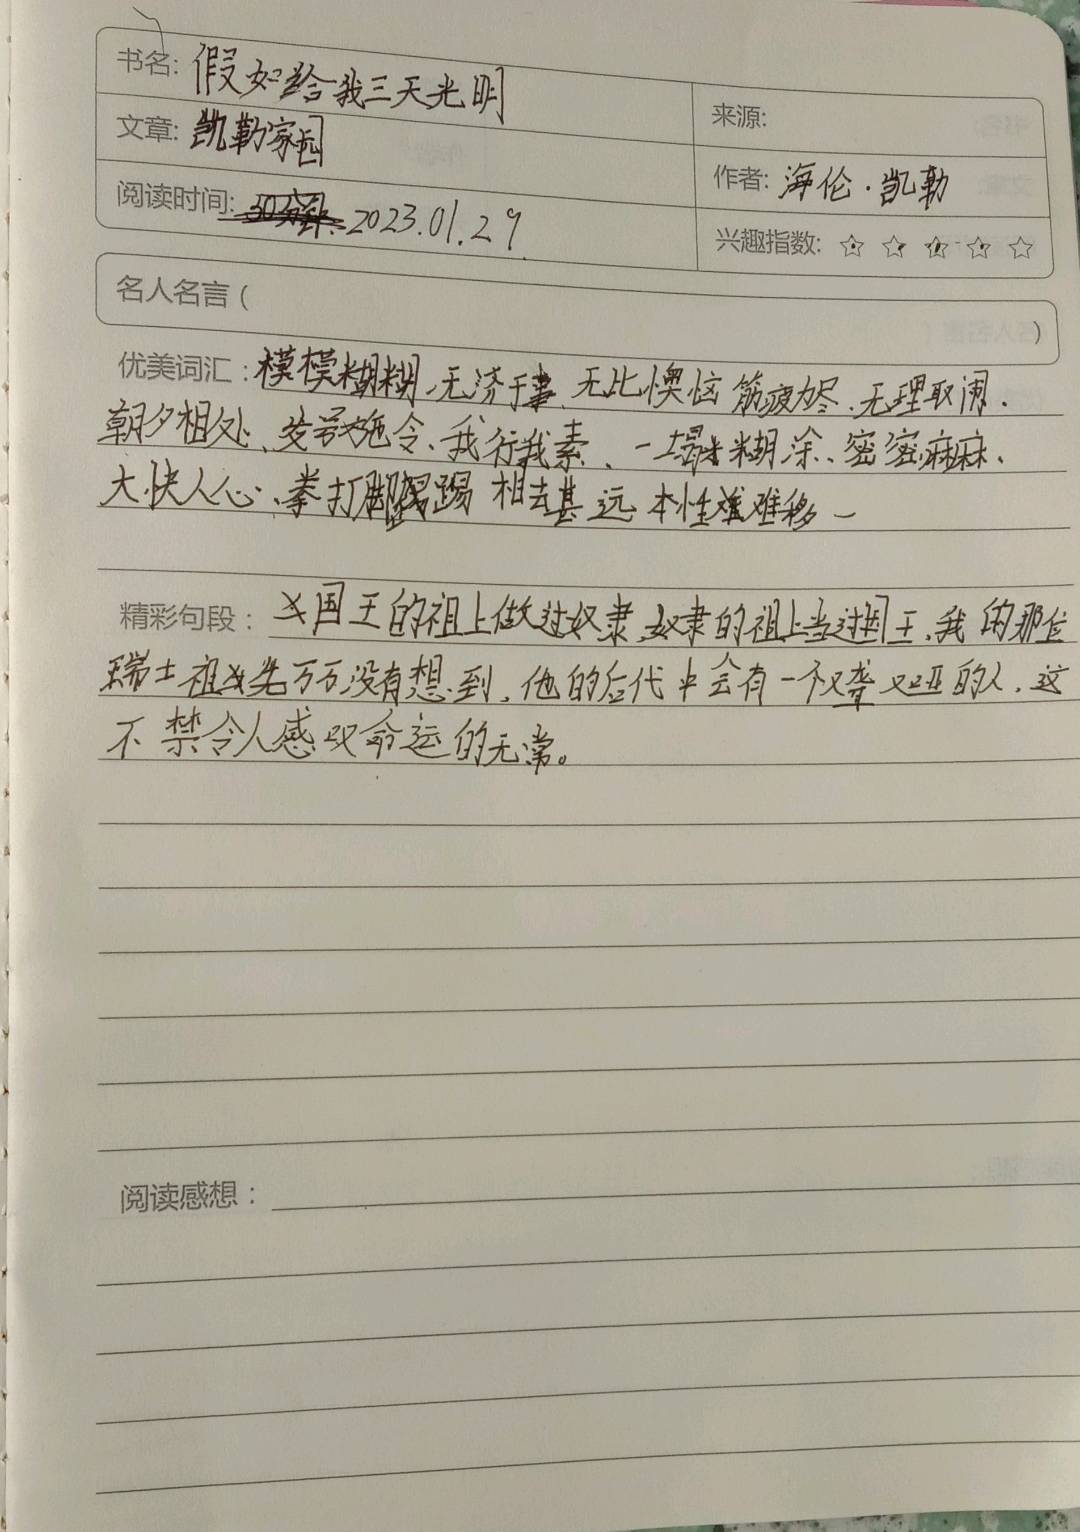 书名: 假如给我三天光明
来源:
文章: 凯勒家园
作者: 海伦·凯勒
阅读时间: 2023.01.29
兴趣指数: ☆ ☆ ☆ ☆ ☆
名人名言 ( )
优美词汇: 模模糊糊、无济于事、无比懊恼 筋疲力尽、无理取闹、
朝夕相处、发号施令、我行我素、一塌糊涂、密密麻麻、
大快人心、拳打脚踢 相去甚远 本性难移
精彩句段: 国王的祖上做过奴隶,奴隶的祖上当过国王,我的那位
瑞士祖先万万没有想到,他的后代中会有一个又聋又哑的人,这
不禁令人感叹命运的无常。
阅读感想: